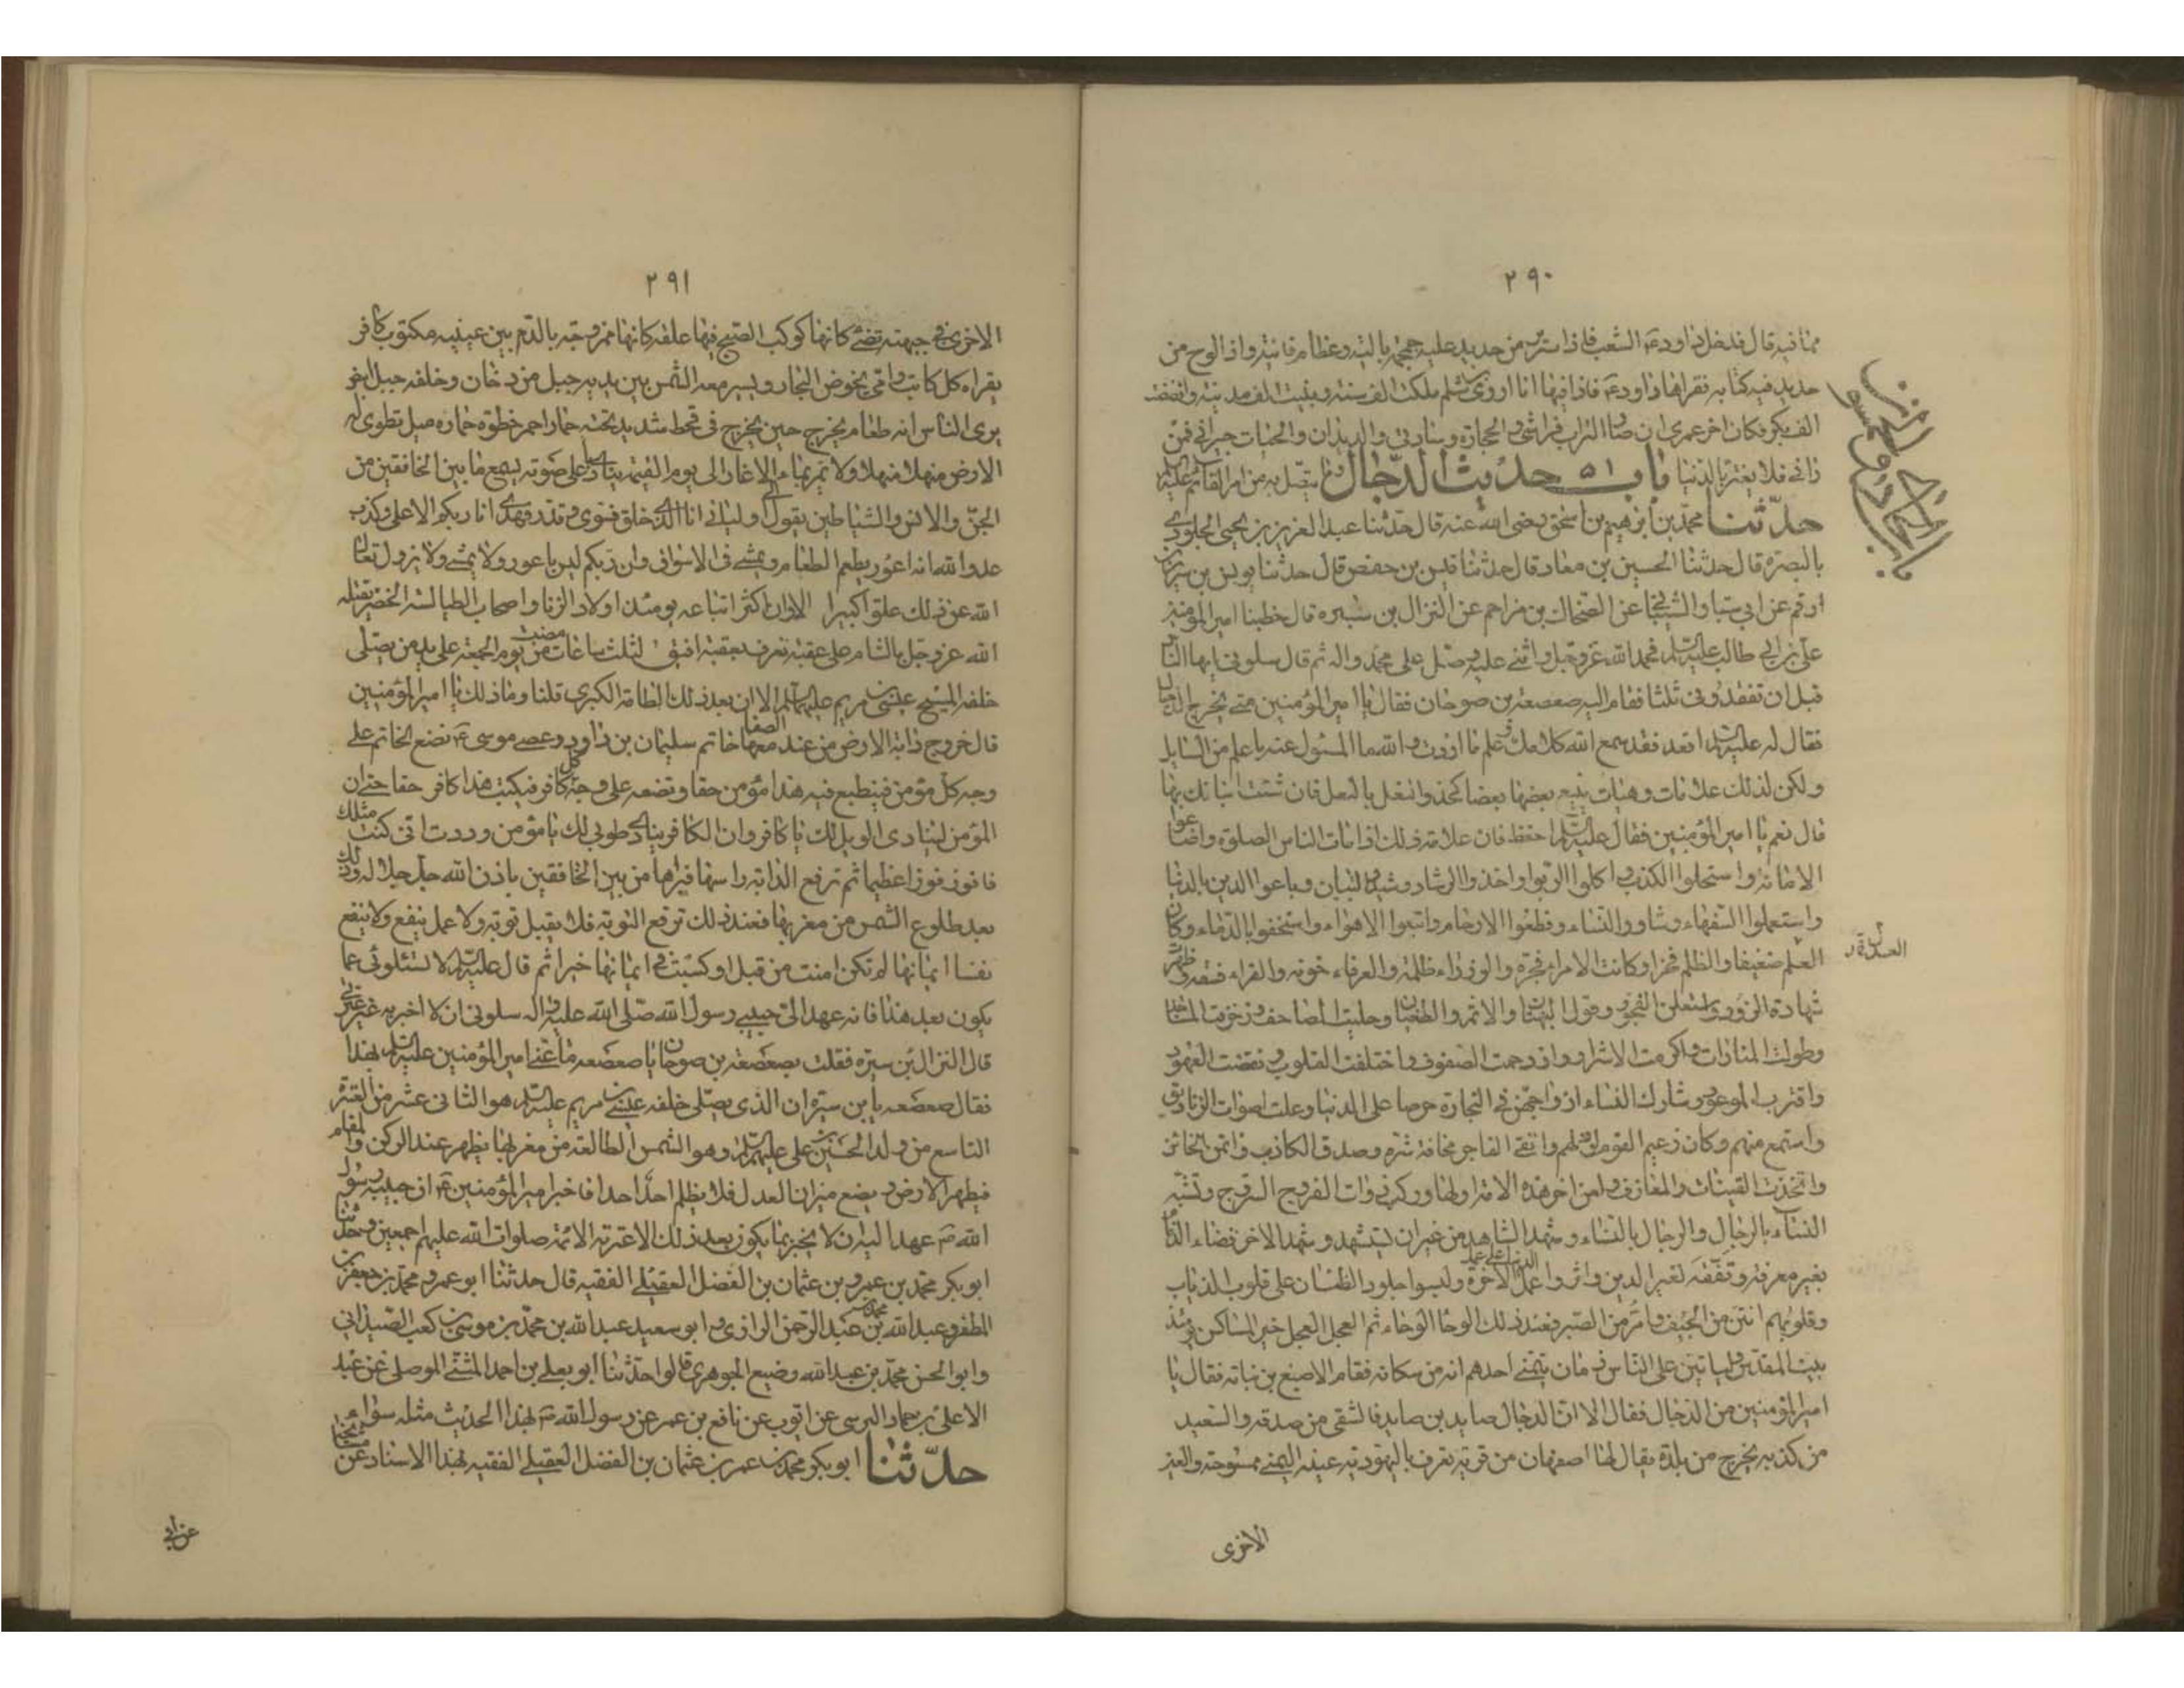 ٢٩٠
مما فيه قال فدخل داود ع الشعب فاذا سرير من حديد عليه جمجمة بالية وعظام فانية واذا لوح من
حديد فيه كتابة فقراها داود ع فاذا فيها انا اروى شلم ملكت الف سنة وبنيت الف مدينة وافتضضت
الف بكر فكان اخر عمرى ان صار التراب فراشى والحجارة وسادتى والديدان والحيات جيرانى فمن
رانى فلا يغتر بالدنيا باب ٥١ حديث الدجال وما يتصل به من امر القائم عليه
حدثنا محمد بن ابرهيم بن اسحق رضى الله عنه قال حدثنا عبد العزيز بن يحيى الجلودى
بالبصرة قال حدثنا الحسين بن معاد قال حدثنا قيس بن حفص قال حدثنا يونس بن
ارقم عن ابى سيار الشيبانى عن الضحاك بن مزاحم عن النزال بن سبره قال خطبنا امير المؤمنين
على بن ابى طالب عليه السلم فحمد الله عز وجل واثنى عليه وصلى على محمد واله ثم قال سلونى ايها الناس
قبل ان تفقدونى ثلثا فقام اليه صعصعة بن صوحان فقال يا امير المؤمنين متى يخرج الدجال
فقال له عليه السلم اقعد فقد سمع الله كلامك وعلم ما اردت والله ما المسئول عنه باعلم من السايل
ولكن لذلك علامات وهنات يتبع بعضها بعضا كحذو النعل بالنعل فان شئت انباتك بها
قال نعم يا امير المؤمنين فقال عليه السلم احفظ فان علامة ذلك اذا مات الناس الصلوة واضاعوا
الامانة واستحلوا الكذب واكلوا الربوا واخذوا الرشا وشيدوا البنيان وباعوا الدين بالدنيا
واستعملوا السفهاء وشاوروا النساء وقطعوا الارحام واتبعوا الاهواء واستخفوا بالدماء وكان
العلم ضعيفا والظلم فخرا وكانت الامراء فجرة والوزراء ظلمة والعرفاء خونه والقراء فسقه وظهرت
شهادة الزور واستعلن الفجور وقول البهتان والاثم والطغيان وحليت المصاحف وزخرفت المساجد
وطولت المنارات واكرمت الاشرار وازدحمت الصفوف واختلفت القلوب ونقضت العهود
واقترب الموعود وشارك النساء ازواجهن فى التجارة حرصا على الدنيا وعلت اصوات الفساق
واستمع منهم وكان زعيم القوم ارذلهم واتقى الفاجر مخافة شره وصدق الكاذب واتمن الخائن
واتخذت القينات والمعازف ولعن اخر هذه الامة اولها وركب ذوات الفروج السروج وتشبه
النساء بالرجال والرجال بالنساء وشهد الشاهد من غير ان يستشهد وشهد الاخر قضاء
بغير معرفة وتفقه لغير الدين واثروا عمل الدنيا على الاخرة ولبسوا جلود الضان على قلوب الذياب
وقلوبهم انتن من الجيف وامر من الصبر فعند ذلك الوحا الوحاء ثم العجل العجل خير المساكن يومئذ
بيت المقدس ليأتين على الناس زمان يتمنى احدهم انه من سكانه فقام الاصبغ بن نباته فقال يا
امير المؤمنين من الدجال فقال الا ان الدجال صايد بن صايد فالشقى من صدقه والسعيد
من كذبه يخرج من بلدة يقال لها اصفهان من قرية تعرف باليهودية عينه اليمنى ممسوحة والعين
الاخرى
٢٩١
الاخرى فى جبهته تضئ كانها كوكب الصبح فيها علقه كانها ممزوجة بالدم بين عينيه مكتوب كافر
يقراه كل كاتب وامى يخوض البحار ويسير معه الشمس بين يديه جبل من دخان وخلفه جبل ابيض
يرى الناس انه طعام يخرج حين يخرج فى قحط شديد تحته حمار احمر خطوة حماره ميل تطوى له
الارض منهلا منهلا ولا يمر بماء الا غار الى يوم القيمة ينادى باعلى صوته يسمع ما بين الخافقين من
الجن والانس والشياطين يقول الى اوليائى انا الذى خلق فسوى وقدر فهدى انا ربكم الاعلى وكذب
عدو الله انه اعور يطعم الطعام ويمشى فى الاسواق وان ربكم ليس باعور ولا يمشى ولا يزول تعالى
الله عن ذلك علوا كبيرا الا وان اكثر اتباعه يومئذ اولاد الزنا واصحاب الطيالسة الخضر يقتله
الله عز وجل بالشام على عقبة تعرف بعقبة افيق لثلث ساعات مضت من يوم الجمعة على يد من يصلى
خلفه المسيح عيسى بن مريم عليهما السلم الا ان بعد ذلك الطامة الكبرى قلنا وما ذلك يا امير المؤمنين
قال خروج دابة الارض من عند الصفا معها خاتم سليمان بن داود وعصى موسى ع تضع الخاتم على
وجه كل مؤمن فينطبع فيه هذا مؤمن حقا وتضعه على وجه كل كافر فيكتب هذا كافر حقا حتى ان
المؤمن لينادى الويل لك يا كافر وان الكافر ينادى طوبى لك يا مؤمن وددت انى كنت مثلك
فافوز فوزا عظيما ثم ترفع الدابة راسها فيراها من بين الخافقين باذن الله جل جلاله وذلك
بعد طلوع الشمس من مغربها فعند ذلك ترفع التوبة فلا يقبل توبة ولا عمل ينفع ولا ينفع
نفسا ايمانها لم تكن امنت من قبل او كسبت فى ايمانها خيرا ثم قال عليه السلم لا تسئلونى عما
يكون بعد هذا فانه عهد الى حبيبى رسول الله صلى الله عليه واله سلونى ان لا اخبر به غير عترتى
قال النزال بن سبره فقلت لصعصعة بن صوحان يا صعصعه ما عنى امير المؤمنين عليه السلم بهذا
فقال صعصعه يا بن سبره ان الذى يصلى خلفه عيسى بن مريم عليه السلم هو الثانى عشر من العترة
التاسع من ولد الحسين بن على عليهم السلم وهو الشمس الطالعة من مغربها يظهر عند الركن والمقام
فيطهر الارض ويضع ميزان العدل فلا يظلم احد احدا فاخبر امير المؤمنين ع ان حبيبه رسول
الله ص عهد اليه ان لا يخبر بما يكون بعد ذلك الا عترته الائمة صلوات الله عليهم اجمعين وحدثنا
ابو بكر محمد بن عمرو بن عثمان بن الفضل العقيلى الفقيه قال حدثنا ابو عمرو محمد بن جعفر بن
المظفر وعبد الله بن محمد بن عبد الرحمن الرازى وابو سعيد عبد الله بن محمد بن موسى بن كعب الصيدانى
وابو الحسن محمد بن عبد الله وضيع الجوهرى قالوا حدثنا ابو يعلى بن احمد المثنى الموصلى عن عبد
الاعلى بن حماد النرسى عن ايوب عن نافع بن عمر عن رسول الله ص بهذا الحديث مثله سواء
حدثنا ابو بكر محمد بن عمر بن عثمان بن الفضل العقيلى الفقيه بهذا الاسناد عن
عن ابى